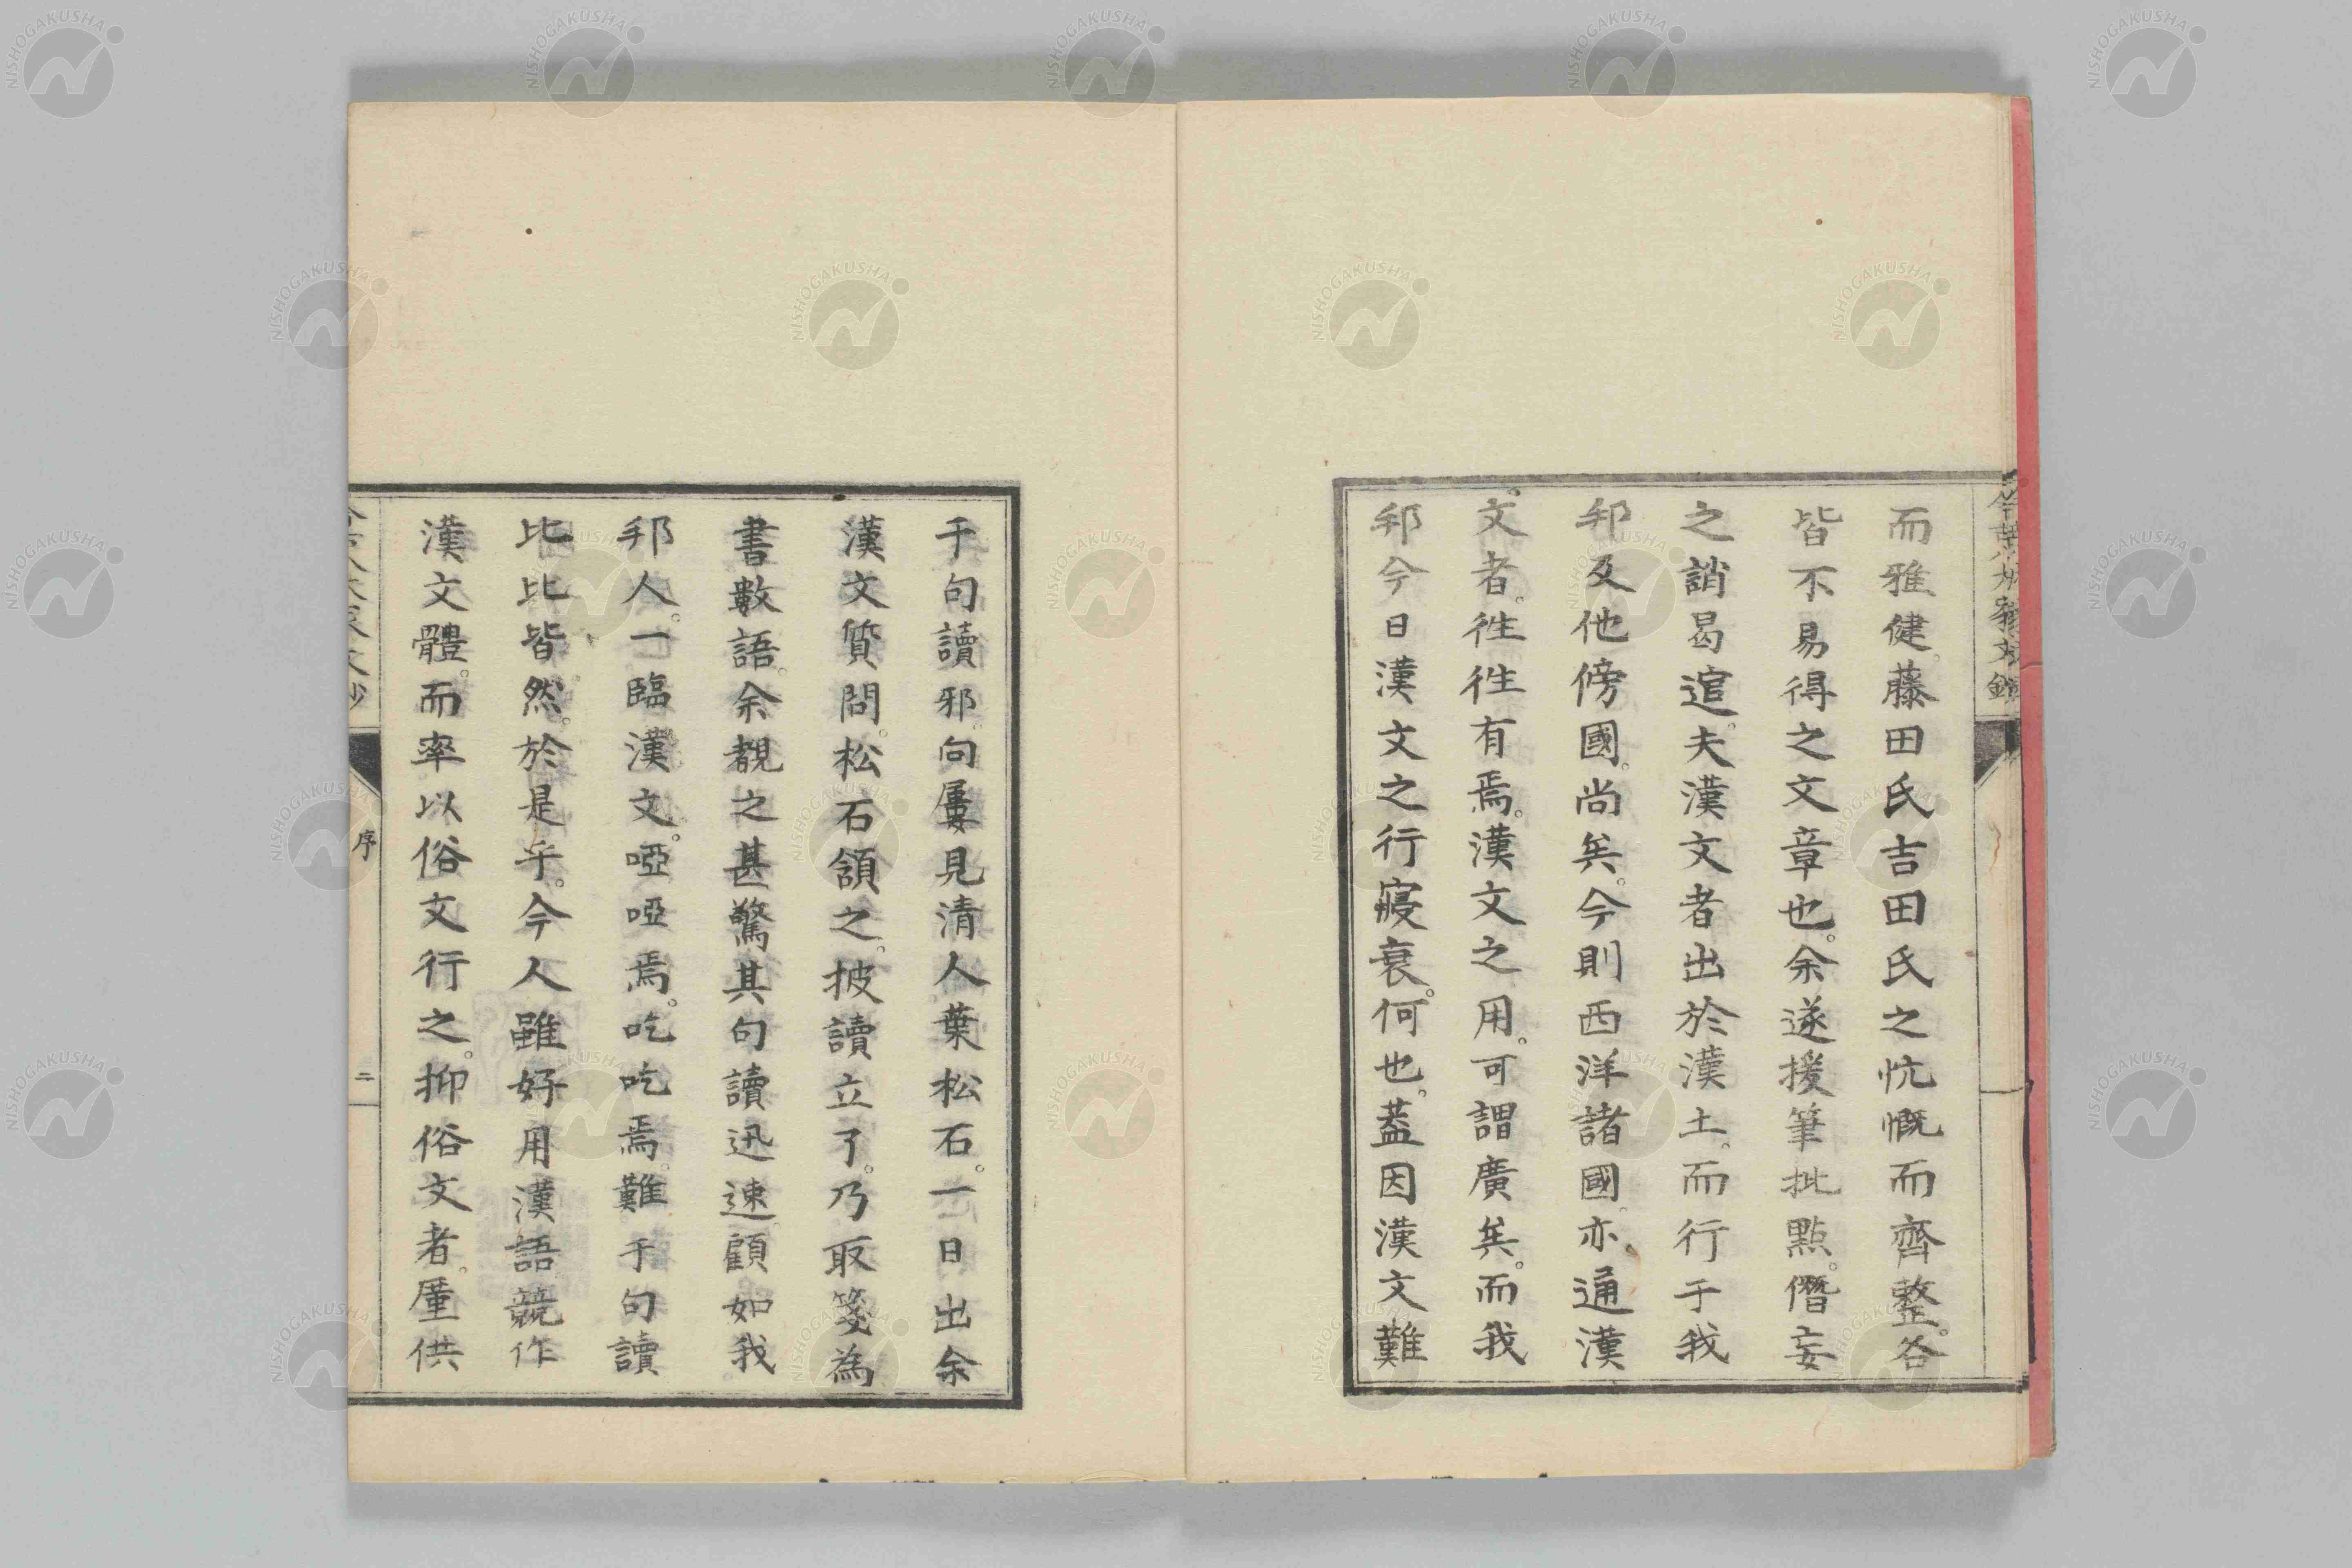 而雅健。藤田氏吉田氏之忼慨而齊整。各
皆不易得之文章也。余遂援筆批點。僭妄
之誚曷逭。夫漢文者出於漢土。而行于我
邦及他傍國。尚矣。今則西洋諸國。亦通漢
文者。徃徃有焉。漢文之用。可謂廣矣。而我
邦今日漢文之行寢衰。何也。蓋因漢文難
于句讀邪。向屢見清人葉松石。一日出余
漢文質問。松石頷之。披讀立了。乃取箋為
書數語。余覩之甚驚其句讀迅速。顧如我
邦人。一臨漢文。啞啞焉。吃吃焉。難于句讀
比比皆然。於是乎。今人雖好用漢語競作
漢文體。而率以俗文行之。抑俗文者。廑供
序
二
NISHOGAKUSHA